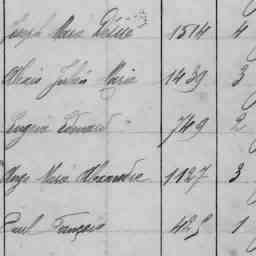 Joseph Marie Désiré 1514 4
Marie Julie Marie 1439 3
Eugène Edouard 749 2
Ange Marie Alexandre 1127 3
Paul François 425 1